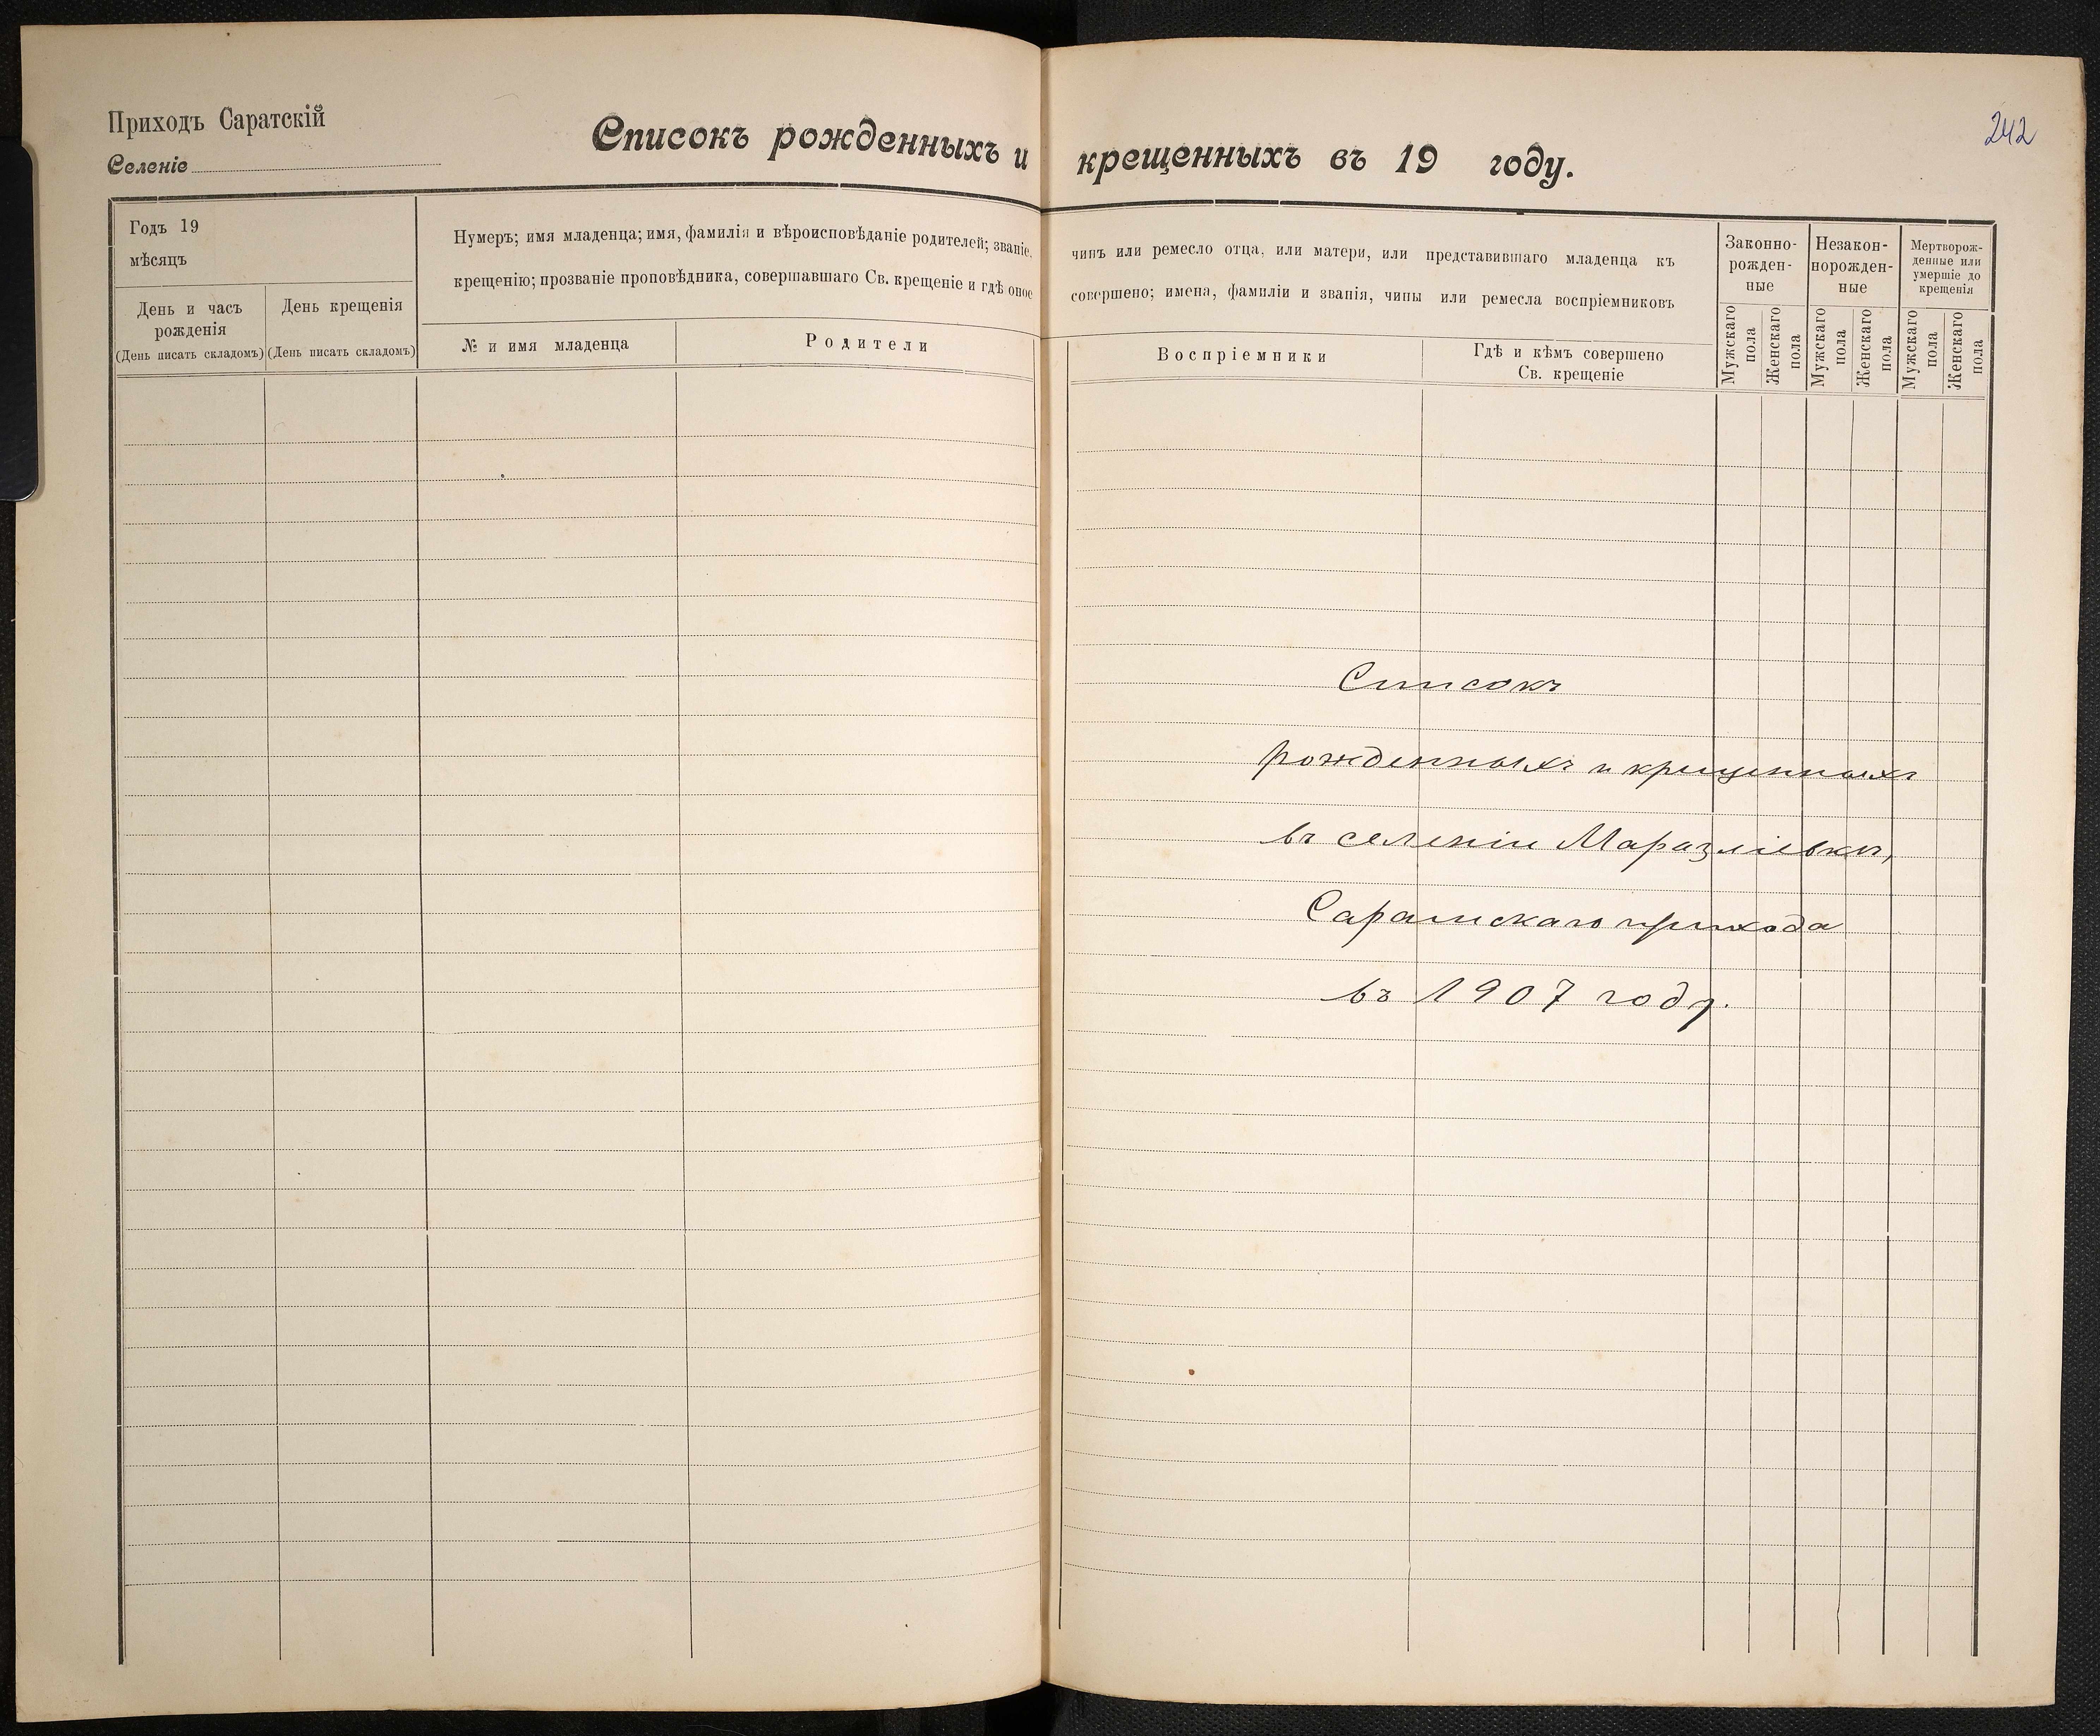 242
Приходъ Саратскій
Селеніе
Списокъ рожденныхъ и крещенныхъ въ 19 году.
Годъ 19
мѣсяцъ
День и часъ
рожденія
(День писать складомъ)
День крещенія
(День писать складомъ)
Нумеръ; имя младенца; имя, фамилія и вѣроисповѣданіе родителей; званіе, чинъ или ремесло отца, или матери, или представившаго младенца къ
крещенію; прозваніе проповѣдника, совершавшаго Св. крещеніе и гдѣ оное совершено; имена, фамиліи и званія, чины или ремесла воспріемниковъ
№ и имя младенца
Родители
Воспріемники
Гдѣ и кѣмъ совершено
Св. крещеніе
Законно-
рожден-
ные
Незакон-
норожден-
ные
Мертворож-
денные или
умершіе до
крещенія
Мужскаго
пола
Женскаго
пола
Мужскаго
пола
Женскаго
пола
Мужскаго
пола
Женскаго
пола
Списокъ
рожденныхъ и крещенныхъ
въ селеніи Маразліевкѣ,
Саратскаго прихода
въ 1907 году.